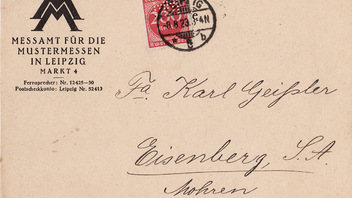 MESSAMT FÜR DIE
MUSTERMESSEN
IN LEIPZIG
MARKT 4
Fernsprecher: Nr. 12425-30
Postscheckkonto: Leipzig Nr. 52413
Fa. Karl Geißler
Eisenberg, S.A.
Mohren